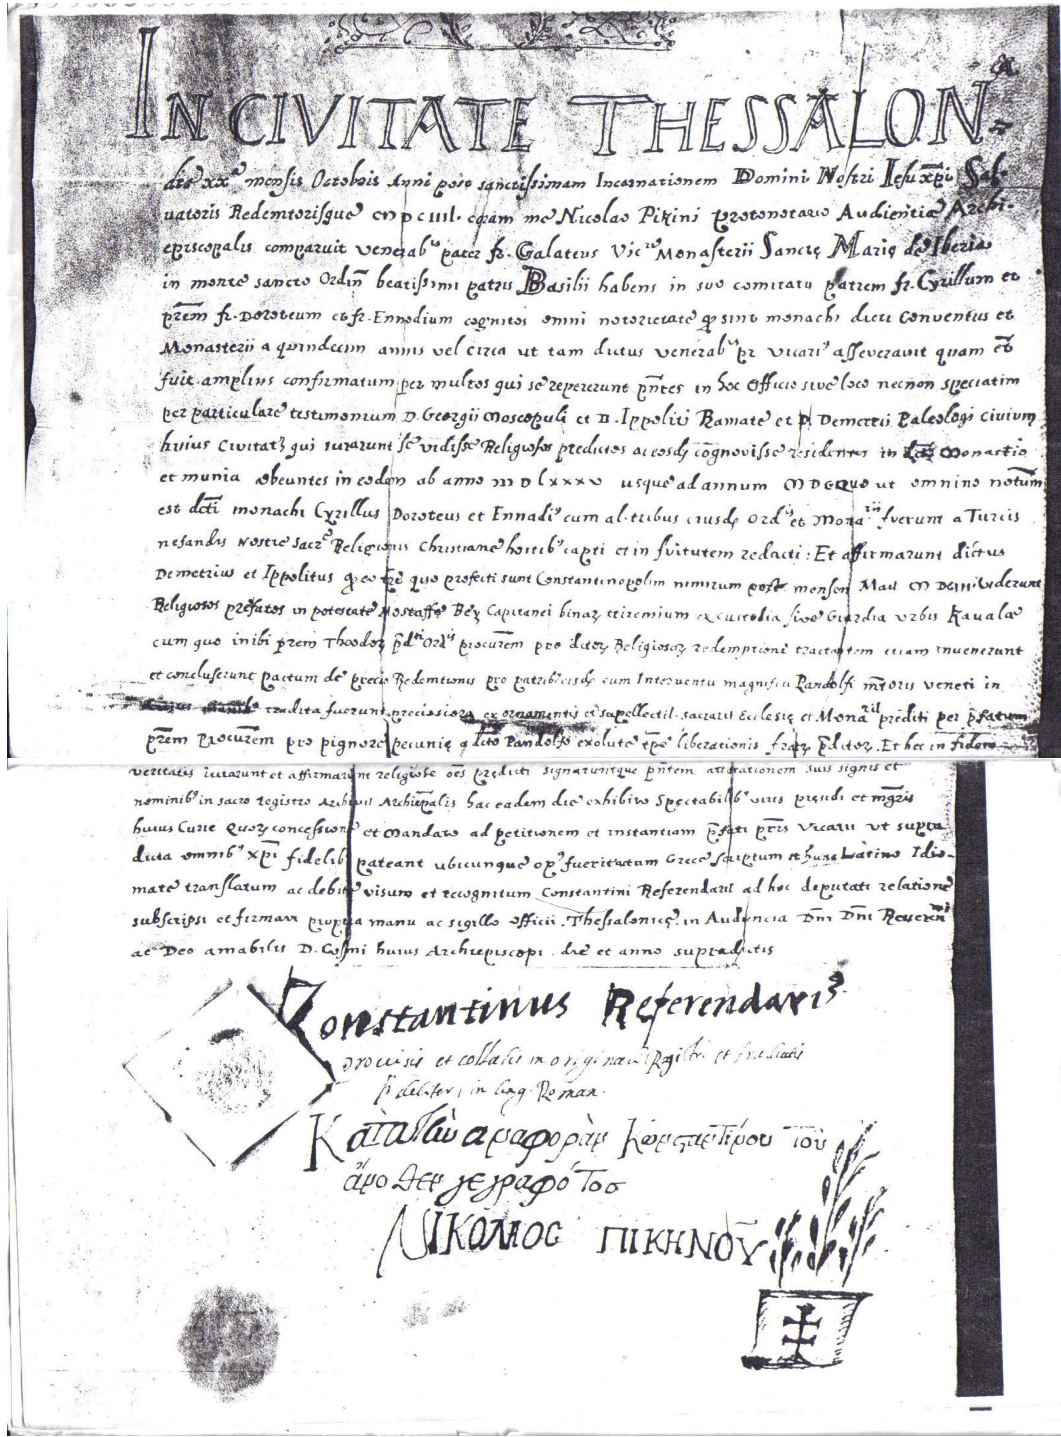 IN CIVITATE THESSALON
die xx.ª mensis Octobris Anni post sanctissimam Incarnationem Domini Nostri Iesu xp̄i Sal-
uatoris Redemtorisque coram me Nicolao Pikini Protonotario Audientiæ Archi-
episcopalis comparuit venerabˢ pater fr. Galateus Vicʳᵘˢ Monasterii Sanctę Marię de Iberia
in monte sancto Ordiñ beatissimi patris Basilii habens in suo comitatu patrem fr. Cyrillum et
pr̄em fr. Doroteum et fr. Ennodium cognitos omni notorietate ꝙ sint monachi dicti Conventus et
Monasterii a quindecim annis vel circa ut tam dictus venerabˢ pr̄ vicariˢ asseveravit quam et̄
fuit amplius confirmatum per multos qui se repererunt pn̄tes in hoc Officio sive loco necnon speciatim
per particulare testimonium D. Georgii Moscopuli et D. Ippoliti Ramate et D. Demetrii Paleologi civium
huius Civitatꝫ qui iurarunt se vidisse Religiosos predictos ac eosdꝫ cognovisse residentes in Monastio
et munia obeuntes in eodem ab anno M D Lxxxv usque ad annum ut omnino notum
est dc̄ti monachi Cyrillus Doroteus et Ennadiˢ cum al-tribus eiusdꝫ Ordˢ et Monaʳⁱⁱ fuerunt a Turcis
nefandis Nostrę Sacrę Religionis Christianę hostibˢ capti et in servitutem redacti: Et affirmarunt dictus
Demetrius et Ippolitus ꝙ eo tp̄e quo profecti sunt Constantinopolim nimirum post mensem Maii viderunt
Religiosos prefatos in potestate Mostaffę Bey Capitanei binaꝝ triremium ex custodia sive Guardia urbis Kavalae
cum quo inibi pr̄em Theodoꝝ pd̄ᵗⁱ Ordˢ procur̄em pro dictoꝝ Religiosoꝝ redemptione tractantem etiam invenerunt
et concluserunt pactum de precio Redemtionis pro patribˢ eisdꝫ cum Interventu magnifici Pandolfi veneti in
tradita fuerunt preciosiora ex ornamentis et supellectil. sacrarii Ecclesię et Monaʳⁱⁱ prediti per pfatum
pr̄em Procur̄em pro pignore pecunię a dicto Pandolfo exolutę tp̄e liberationis fratꝝ pd̄itoꝝ. Et hec in fidem
veritatis iurarunt et affirmarunt religiose oēs predicti signaruntque pn̄tem attestationem suis signis et
nominibˢ in sacro registro Archivii Archiep̄alis hac eadem die exhibito Spectabilibˢ viris
huius Curię Quoꝝ concessione et Mandato ad petitionem et instantiam pfati pr̄is Vicarii ut supra
dicta omnibˢ xp̄i fidelibˢ pateant ubicunque opˢ fuerit Grece scriptum et hunc Latino Idio-
mate translatum ac debite visum et recognitum Constantini Referendarii ad hoc deputati relatione
subscripsi et firmavi propria manu ac sigillo officii. Thessalonicę. in Audiencia Dn̄i Dn̄i Reveren
ac Deo amabilis D. Cosmi huius Archiepiscopi. die et anno supradictis
Constantinus Referendariˢ
provisis et collatis in originali Registri et
fideliter in ling. Roman.
Κατὰ τὴν ἀναφορὰν Κωνσταντίνου τοῦ
ἄνοθεν γεγραφότος
ΝΙΚΟΛΑΟΣ ΠΙΚΗΝΟΥ